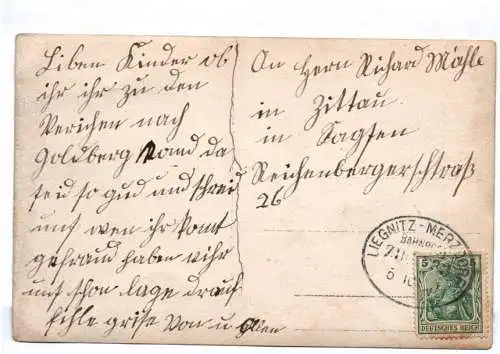 Liben Kinder ob
ihr ihr zu den
Verichen nach
Goldberg komd da
seid so gud und schreid
uns wen ihr komt
gefraud haben wihr
uns schon lage drauf
fihle grise von u allen
An Hern Richard Mähle
in Zittau
in Sagsen
Reichenbergerschtraß
26
LIEGNITZ-MERZDORF
BAHNPOST
5
5
DEUTSCHES REICH